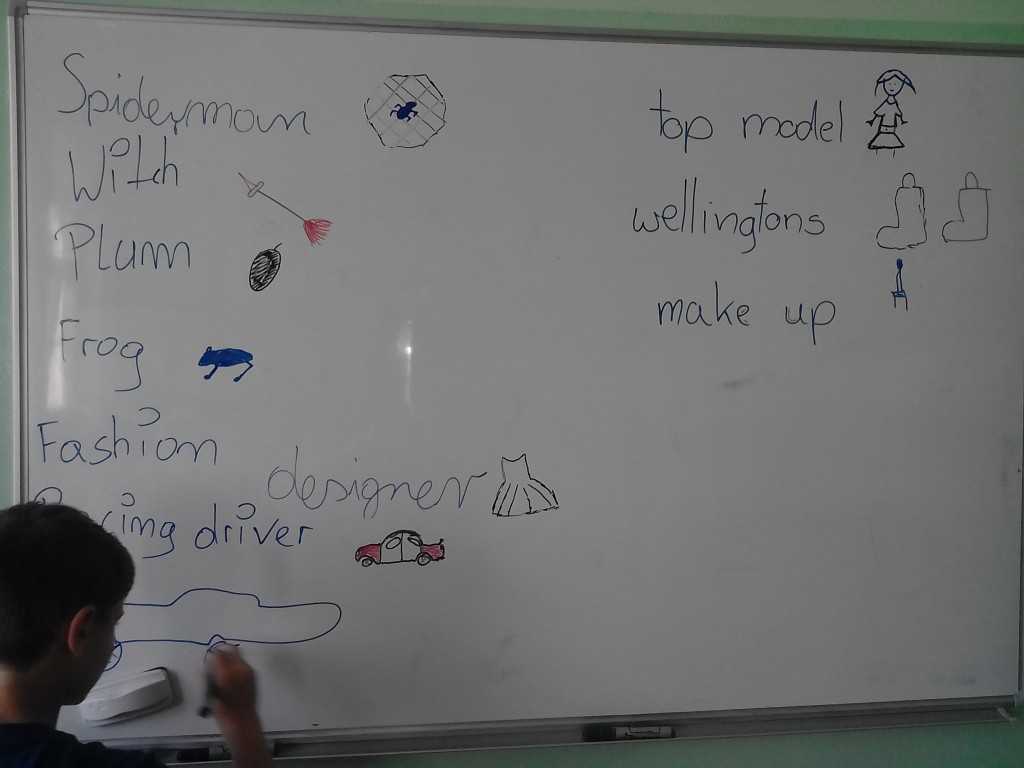 Spiderman
Witch
Plum
Frog
Fashion
designer
cing driver
top model
wellingtons
make up